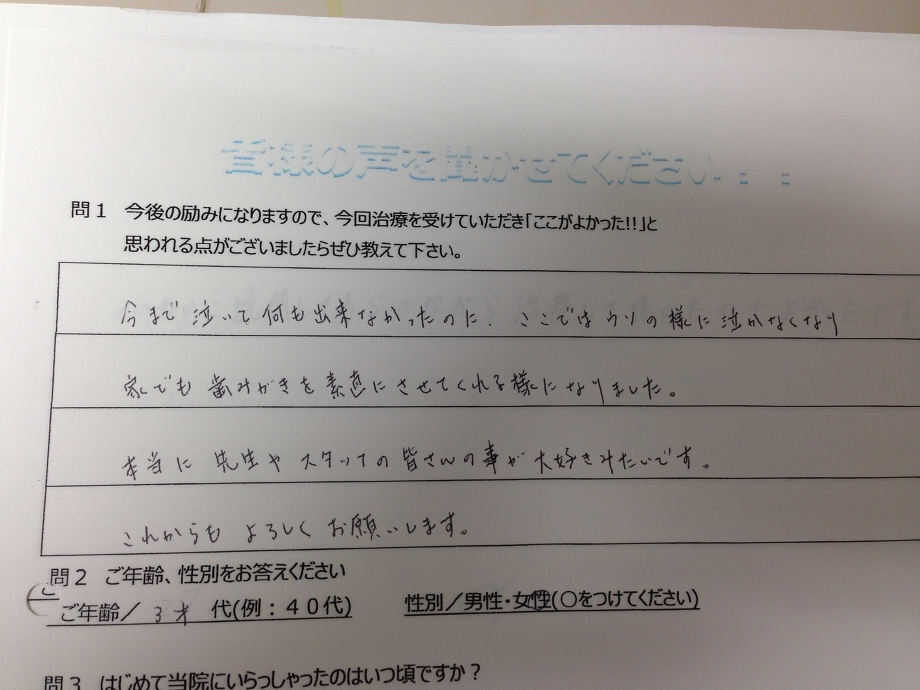 皆様の声を聞かせてください！！
問１ 今後の励みになりますので、今回治療を受けていただき「ここがよかった!!」と
思われる点がございましたらぜひ教えて下さい。
今まで泣いて何も出来なかったのに、ここではウソの様に泣かなくなり
家でも歯みがきを素直にさせてくれる様になりました。
本当に先生やスタッフの皆さんの事が大好きみたいです。
これからもよろしくお願いします。
問２ ご年齢、性別をお答えください
ご年齢／３才 代(例：４０代) 性別／男性・女性(○をつけてください)
問３ はじめて当院にいらっしゃったのはいつ頃ですか？